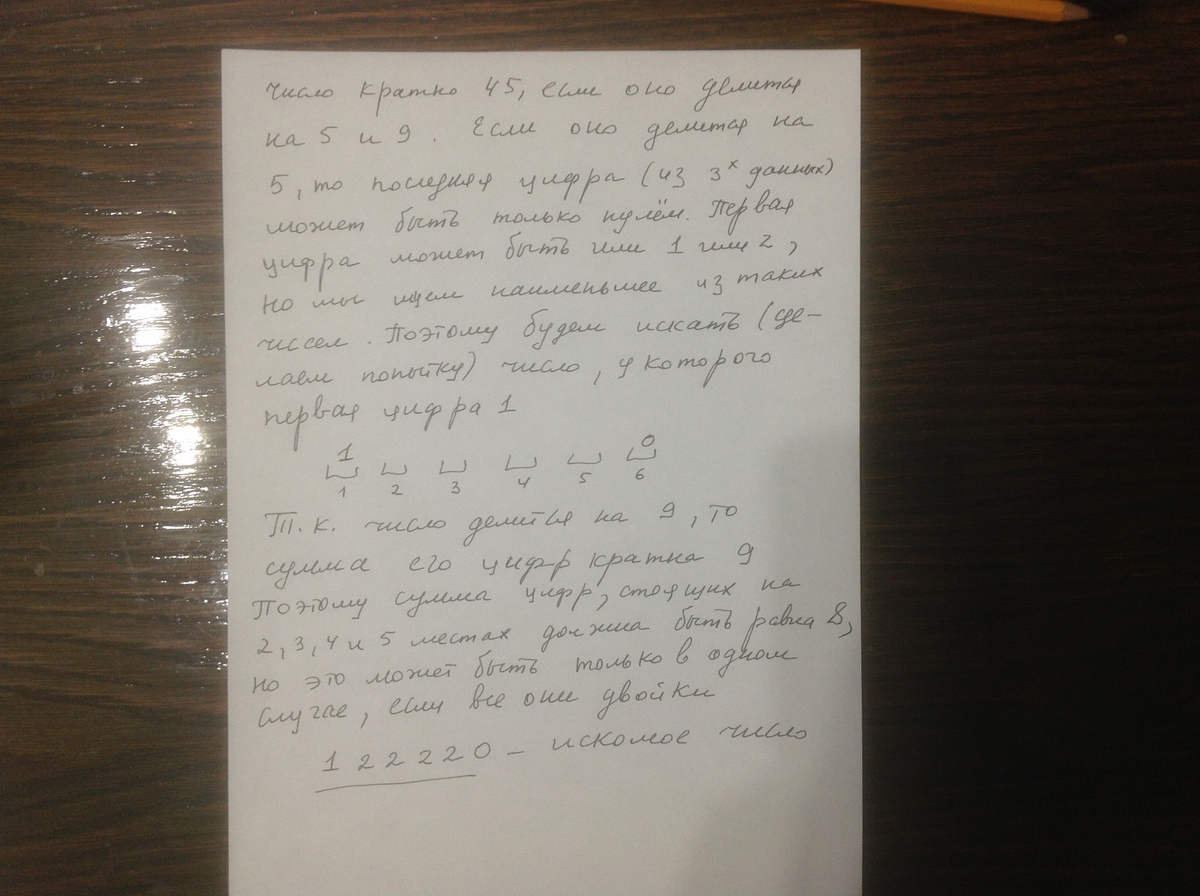 число кратно 45, если оно делится
на 5 и 9. Если оно делится на
5, то последняя цифра (из 3х данных)
может быть только нулём. Первая
цифра может быть или 1 или 2,
но мы ищем наименьшее из таких
чисел. Поэтому будем искать (сде-
лаем попытку) число, у которого
первая цифра 1
1 0
1 2 3 4 5 6
Т.к. число делится на 9, то
сумма его цифр кратна 9
Поэтому сумма цифр, стоящих на
2, 3, 4 и 5 местах должна быть равна 8,
но это может быть только в одном
случае, если все они двойки
1 2 2 2 2 0 – искомое число